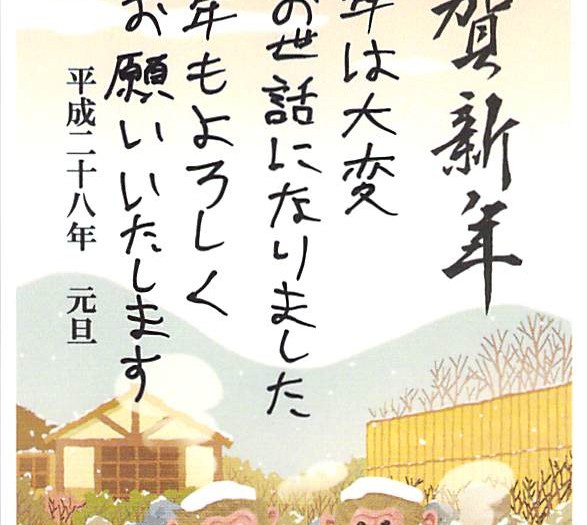 賀新年
年は大変
お世話になりました
年もよろしく
お願いいたします
平成二十八年 元旦